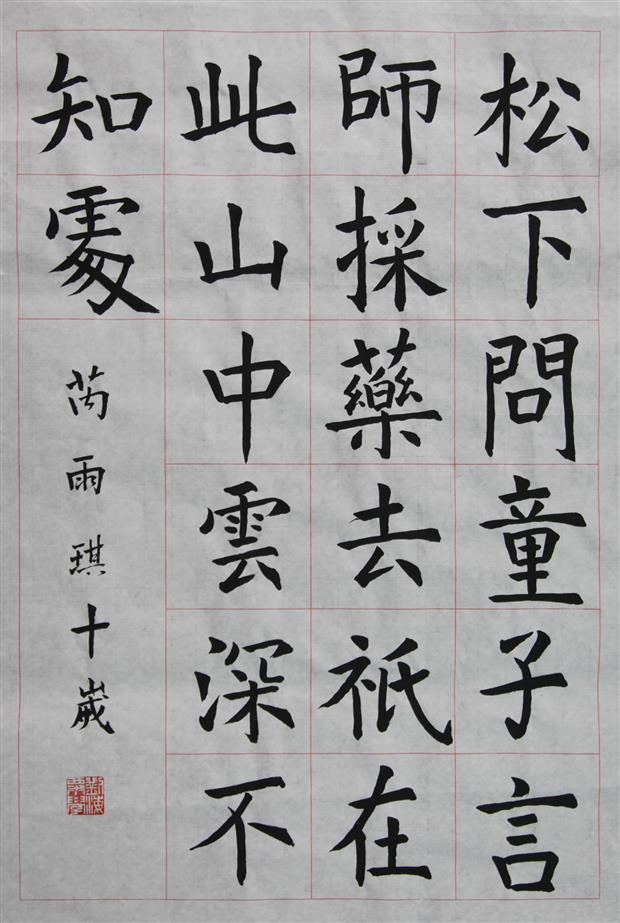 松下問童子言
師採藥去祇在
此山中雲深不
知處
芮雨琪十歲